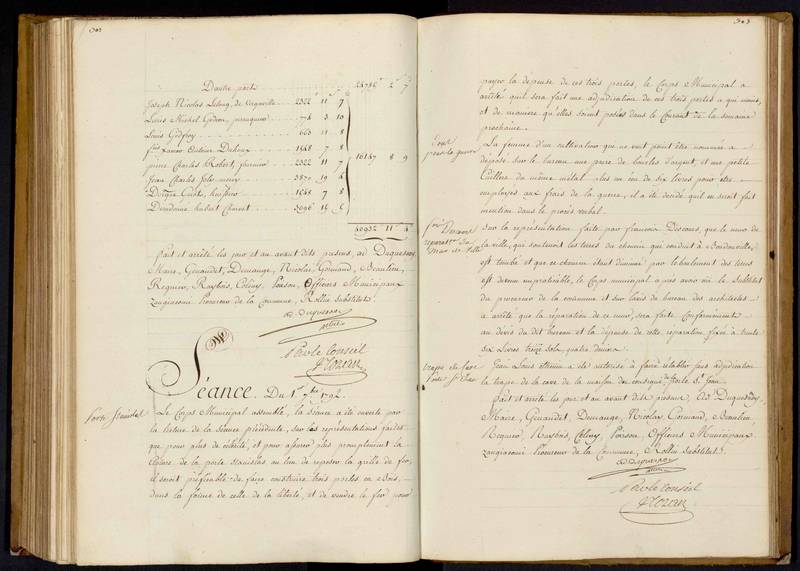 D'autre part 28796 2 7
Joseph Nicolas 2322 11 7
Louis Michel perruquier 774 3 10
Louis Godfroy 663 11 8
1548 7 8
Charles Robert, fermier 2322 11 7
Jean Charles 3870 19
1548 7 8
Dieudonné hubert 3096 15 6
16187 8 9
40932 11 4
Fait et arrêté les jour et an avant dits présens, ad Duquesnoy
Maire, Genaudet, Demange, Nicolas, Gormand, Beaulieu,
Regnier, Raybois, Coliny, Poirson, Officiers Municipaux
zangiacomi Procureur de la Commune, Rollin Substitut.
ad Duquesnoy
maire
Par le Conseil
Séance. Du 1er 7bre 1792.
Porte Stanislas
Le Corps Municipal assemblé, la séance a été ouverte par
la lecture de la séance précédente, sur les représentations faites
que pour plus de célérité, et pour assurer plus promptement la
clôture de la porte Stanislas au lieu de reposer la grille de fer,
il seroit préférable de faire construire trois portes en bois,
dans la forme de celle de la liberté, et de vendre le fer pour
303
payer la dépense de ces trois portes, le Corps Municipal a
arrêté qu'il sera fait une adjudication de ces trois portes a qui moins,
et de manière qu'elles soient posées dans le Courant de la semaine
prochaine.
Dons pour la guerre
La femme d'un cultivateur qui ne veut point être nommée a
déposé sur le bureau une paire de boucles d'argent, et une petite
Cuillere de même métal plus un écu de six livres pour être
employés aux frais de la guerre, il a été décidé qu'il en seroit fait
mention dans le procès verbal.
réparation du Mur de Ville
Sur la représentation faite par françois Descours, que le mur de
la ville, qui soutenoit les terres du chemin qui conduit à Boudonville,
est tombé et que ce chemin étant diminué par l'éboulement des terres
est devenu impraticable, le Corps municipal a pres avoir oui le Substitut
du procureur de la commune et sur l'avis du bureau des architectes
a arrêté que la réparation de ce mur, sera faite conformément
au devis du dit bureau et la dépense de cette réparation fixée à trente
six Livres treize sols, quatre deniers.
trape de cave Porte St Jean
Jean Louis Etienne a été autorisé à faire établir sans adjudication
la trape de la cave de la maison du consigne de Porte St Jean.
Fait et arrêté les jour et an avant dits présens, Ad. Duquesnoy,
Maire, Genaudet, Demange, Nicolas, Gormand, Beaulieu
Regnier, Raybois, Coliny, Poirson, Officiers Municipaux
zangiacomi Procureur de la Commune, Rollin Substitut.
ad Duquesnoy
maire
Par le Conseil